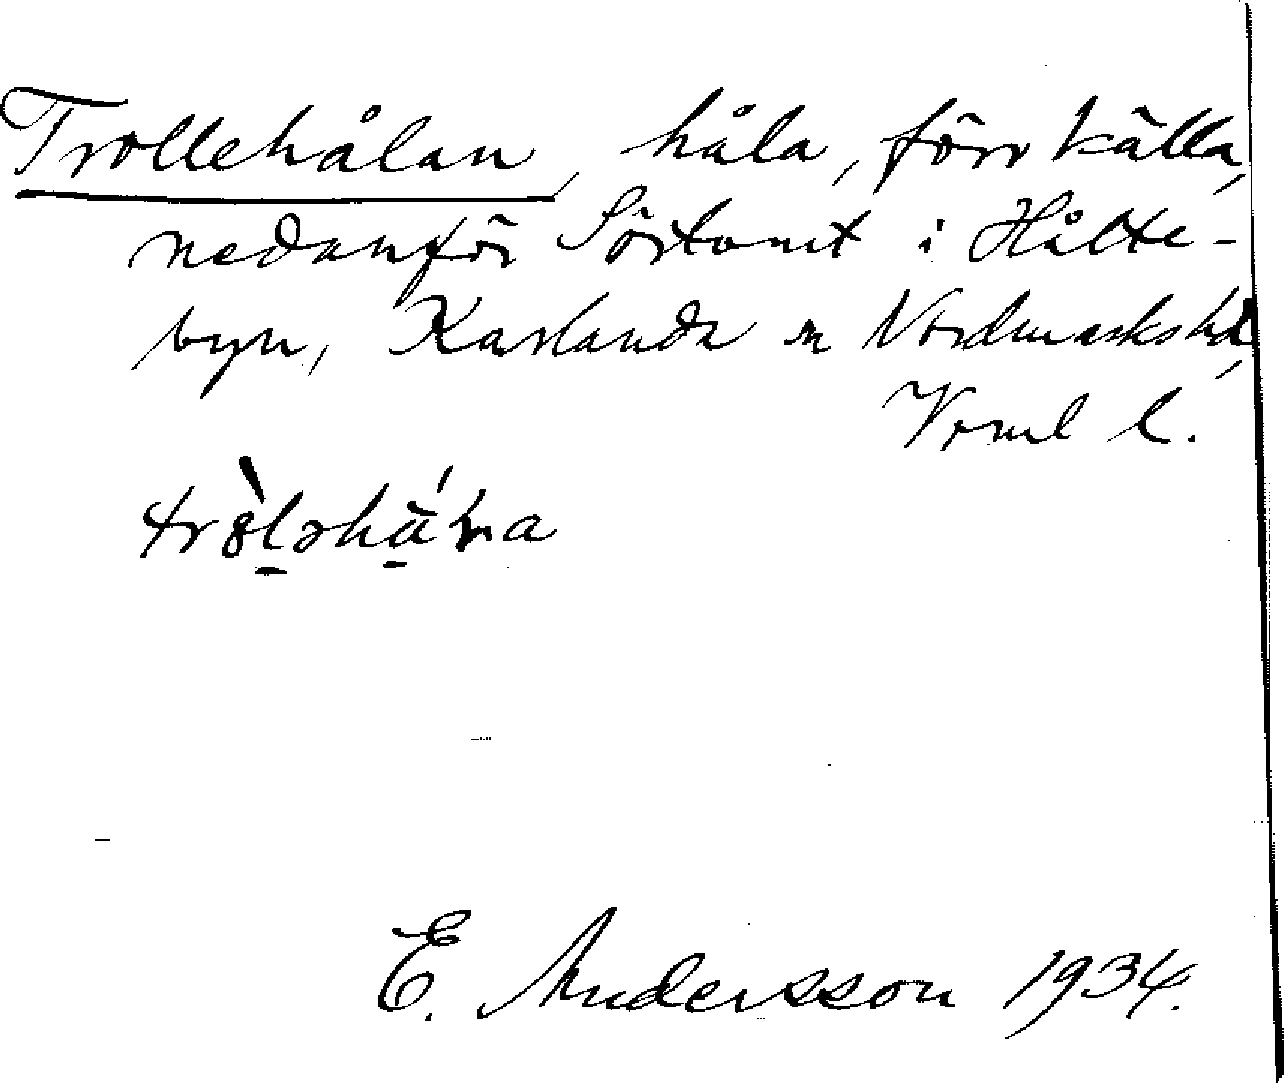 Trollehålan, håla, förr källa,
nedanför Sörtomt i Hålte-
byn, Karlanda sn Nordmarks hd,
Vrml l.
E. Andersson 1934.